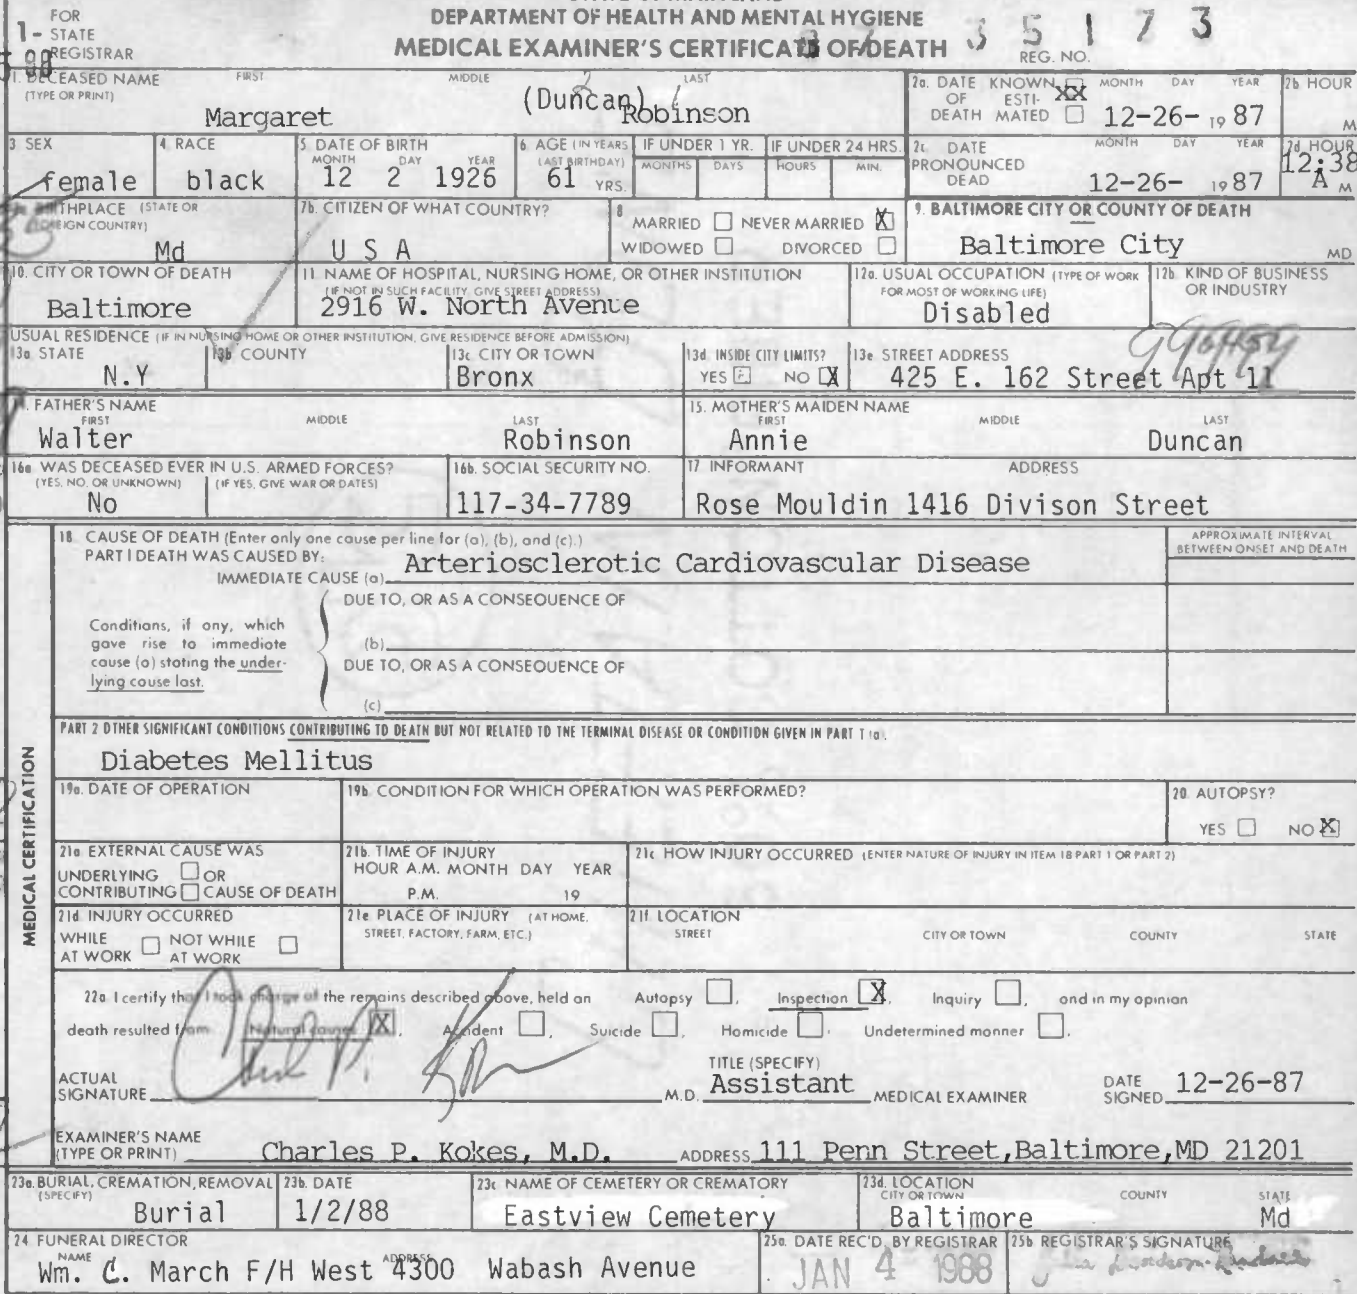 FOR
1- STATE
REGISTRAR
DEPARTMENT OF HEALTH AND MENTAL HYGIENE
MEDICAL EXAMINER'S CERTIFICATE OF DEATH
35173
REG. NO.
1. DECEASED NAME FIRST MIDDLE LAST
(TYPE OR PRINT)
Margaret (Duncan) Robinson
2a. DATE KNOWN XX MONTH DAY YEAR
OF ESTI-
DEATH MATED 12-26- 19 87
2b HOUR
M
3 SEX
female
4 RACE
black
5 DATE OF BIRTH
MONTH DAY YEAR
12 2 1926
6 AGE (IN YEARS
LAST BIRTHDAY)
61 YRS.
IF UNDER 1 YR.
MONTHS DAYS
IF UNDER 24 HRS.
HOURS MIN.
2c DATE MONTH DAY YEAR
PRONOUNCED
DEAD 12-26- 19 87
2d HOUR
12:38
A M
BIRTHPLACE (STATE OR
FOREIGN COUNTRY)
Md
7b. CITIZEN OF WHAT COUNTRY?
U S A
8
MARRIED NEVER MARRIED X
WIDOWED DIVORCED
9. BALTIMORE CITY OR COUNTY OF DEATH
Baltimore City MD
10. CITY OR TOWN OF DEATH
Baltimore
11. NAME OF HOSPITAL, NURSING HOME, OR OTHER INSTITUTION
(IF NOT IN SUCH FACILITY, GIVE STREET ADDRESS)
2916 W. North Avenue
12a. USUAL OCCUPATION (TYPE OF WORK
FOR MOST OF WORKING LIFE)
Disabled
12b. KIND OF BUSINESS
OR INDUSTRY
USUAL RESIDENCE (IF IN NURSING HOME OR OTHER INSTITUTION, GIVE RESIDENCE BEFORE ADMISSION)
13a STATE
N.Y
13b COUNTY
13c CITY OR TOWN
Bronx
13d. INSIDE CITY LIMITS?
YES NO X
13e STREET ADDRESS
425 E. 162 Street Apt 11
FATHER'S NAME
FIRST MIDDLE LAST
Walter Robinson
15. MOTHER'S MAIDEN NAME
FIRST MIDDLE LAST
Annie Duncan
16a WAS DECEASED EVER IN U.S. ARMED FORCES?
(YES, NO, OR UNKNOWN) (IF YES, GIVE WAR OR DATES)
No
16b. SOCIAL SECURITY NO.
117-34-7789
17 INFORMANT ADDRESS
Rose Mouldin 1416 Divison Street
MEDICAL CERTIFICATION
18 CAUSE OF DEATH (Enter only one cause per line for (a), (b), and (c).)
PART I DEATH WAS CAUSED BY:
IMMEDIATE CAUSE (a) Arteriosclerotic Cardiovascular Disease
APPROXIMATE INTERVAL
BETWEEN ONSET AND DEATH
DUE TO, OR AS A CONSEQUENCE OF
Conditions, if any, which
gave rise to immediate
cause (a) stating the under-
lying cause last.
(b)
DUE TO, OR AS A CONSEQUENCE OF
(c)
PART 2 OTHER SIGNIFICANT CONDITIONS CONTRIBUTING TO DEATH BUT NOT RELATED TO THE TERMINAL DISEASE OR CONDITION GIVEN IN PART 1 (a).
Diabetes Mellitus
19a. DATE OF OPERATION
19b. CONDITION FOR WHICH OPERATION WAS PERFORMED?
20 AUTOPSY?
YES NO X
21a EXTERNAL CAUSE WAS
UNDERLYING OR
CONTRIBUTING CAUSE OF DEATH
21b. TIME OF INJURY
HOUR A.M. MONTH DAY YEAR
P.M. 19
21c HOW INJURY OCCURRED (ENTER NATURE OF INJURY IN ITEM 18 PART 1 OR PART 2)
21d INJURY OCCURRED
WHILE NOT WHILE
AT WORK AT WORK
21e PLACE OF INJURY (AT HOME,
STREET, FACTORY, FARM, ETC.)
21f. LOCATION
STREET CITY OR TOWN COUNTY STATE
22a I certify that I took charge of the remains described above, held an Autopsy , Inspection X , Inquiry , and in my opinion
death resulted from Natural causes X , Accident , Suicide , Homicide , Undetermined manner .
ACTUAL
SIGNATURE Charles P. Kokes M.D.
TITLE (SPECIFY)
Assistant MEDICAL EXAMINER
DATE
SIGNED 12-26-87
EXAMINER'S NAME
(TYPE OR PRINT) Charles P. Kokes, M.D. ADDRESS 111 Penn Street, Baltimore, MD 21201
23a. BURIAL, CREMATION, REMOVAL
(SPECIFY)
Burial
23b. DATE
1/2/88
23c NAME OF CEMETERY OR CREMATORY
Eastview Cemetery
23d. LOCATION
CITY OR TOWN COUNTY STATE
Baltimore Md
24 FUNERAL DIRECTOR
NAME ADDRESS
Wm. C. March F/H West 4300 Wabash Avenue
25a. DATE REC'D. BY REGISTRAR
JAN 4 1988
25b REGISTRAR'S SIGNATURE